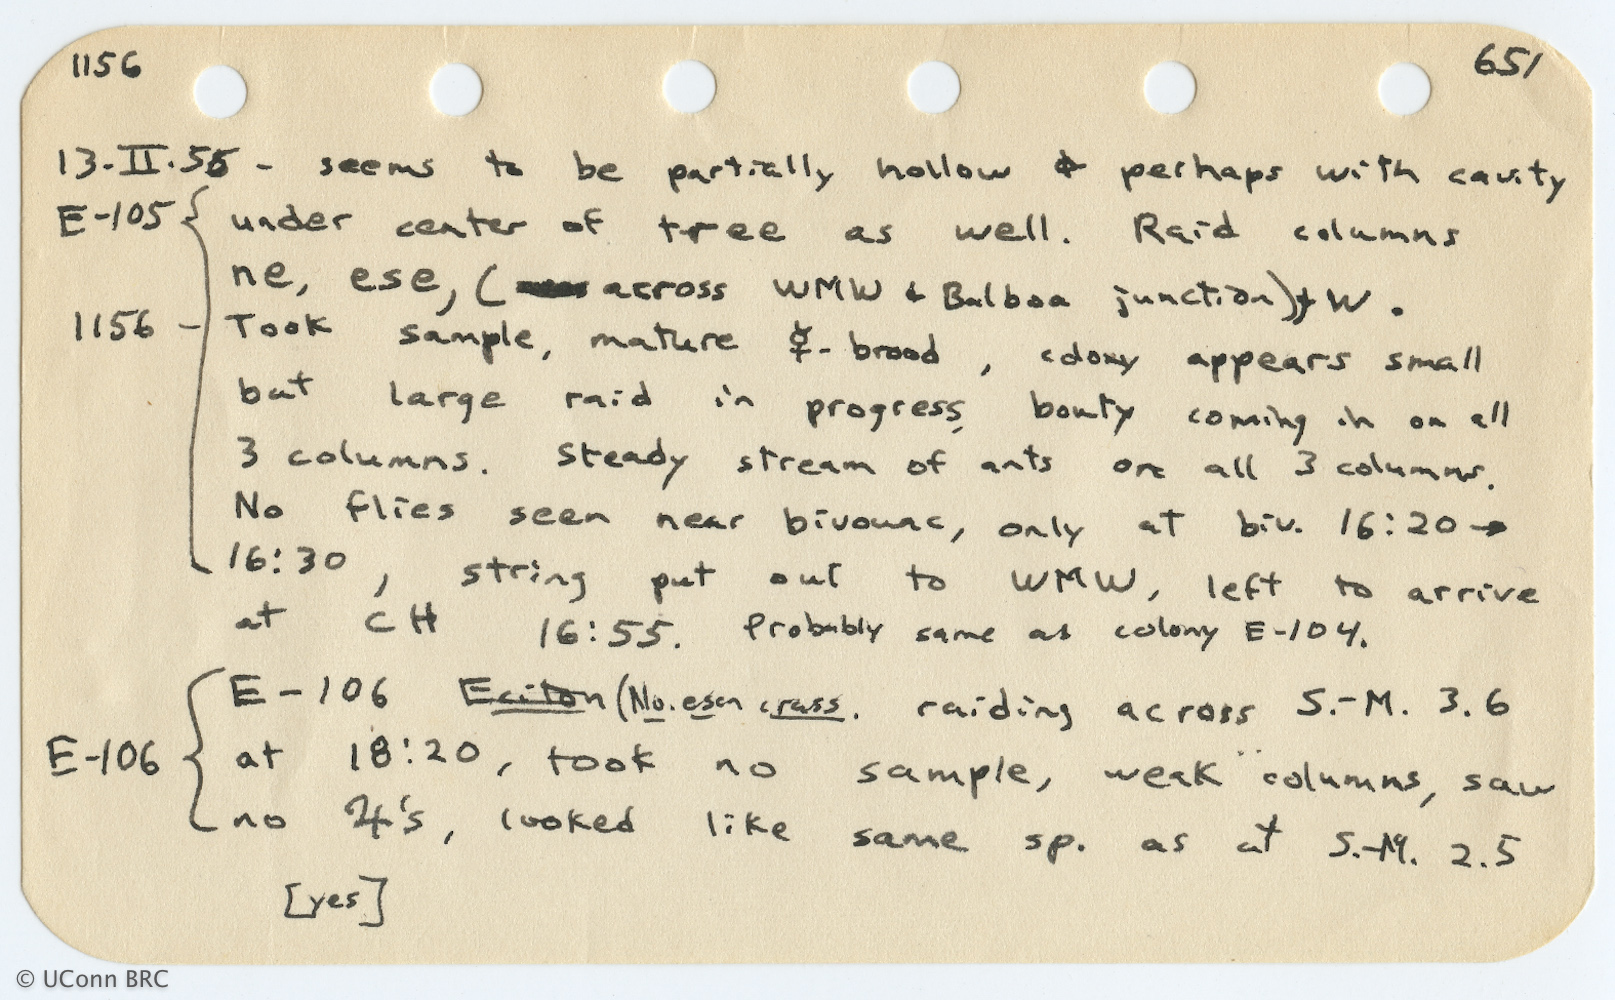 1156 651
13-II.55 - seems to be partially hollow & perhaps with cavity
E-105 { under center of tree as well. Raid columns
ne, ese, ( across WMW & Balboa junction) & W.
1156 - Took sample, mature ☿-brood, colony appears small
but large raid in progress, booty coming in on all
3 columns. Steady stream of ants on all 3 columns.
No flies seen near bivouac, only at biv. 16:20 →
16:30, string put out to WMW, left to arrive
at CH 16:55. Probably same as colony E-104.
E-106 Eciton (No. esen crass. raiding across S.-M. 3.6
E-106 { at 18:20, took no sample, weak columns, saw
no ♃'s, looked like same sp. as at S.-M. 2.5
[yes]
© UConn BRC